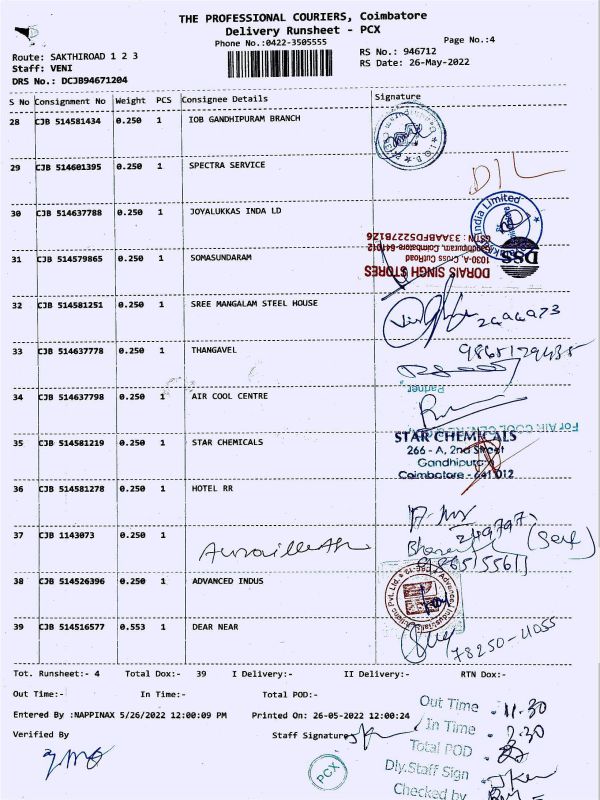 THE PROFESSIONAL COURIERS, Coimbatore
Delivery Runsheet - PCX
Phone No.:0422-3505555
Page No.:4
Route: SAKTHIROAD 1 2 3
Staff: VENI
DRS No.: DCJB94671204
RS No.: 946712
RS Date: 26-May-2022
S No Consignment No Weight PCS Consignee Details Signature
28 CJB 514581434 0.250 1 IOB GANDHIPURAM BRANCH
29 CJB 514601395 0.250 1 SPECTRA SERVICE
30 CJB 514637788 0.250 1 JOYALUKKAS INDA LD
India Limited
31 CJB 514579865 0.250 1 SOMASUNDARAM
GSTN : 33AABFD5227B1Z6
Gandhipuram, Coimbatore-641012
1030-A, Cross CutRoad
DORAI SINGH STORES
DSS
32 CJB 514581251 0.250 1 SREE MANGALAM STEEL HOUSE
33 CJB 514637778 0.250 1 THANGAVEL
34 CJB 514637798 0.250 1 AIR COOL CENTRE
Partner
For AIR COOL CENTRE
35 CJB 514581219 0.250 1 STAR CHEMICALS
STAR CHEMICALS
266 - A, 2nd Street
Gandhipuram
Coimbatore - 641 012
36 CJB 514581278 0.250 1 HOTEL RR
37 CJB 1143073 0.250 1
(Self)
38 CJB 514526396 0.250 1 ADVANCED INDUS
39 CJB 514516577 0.553 1 DEAR NEAR
78250-41055
Tot. Runsheet:- 4 Total Dox:- 39 I Delivery:- II Delivery:- RTN Dox:-
Out Time:- In Time:- Total POD:-
Entered By :NAPPINAX 5/26/2022 12:00:09 PM Printed On: 26-05-2022 12:00:24
Verified By Staff Signature
PCX
Out Time 11.30
In Time 2.30
Total POD
Dly.Staff Sign
Checked by